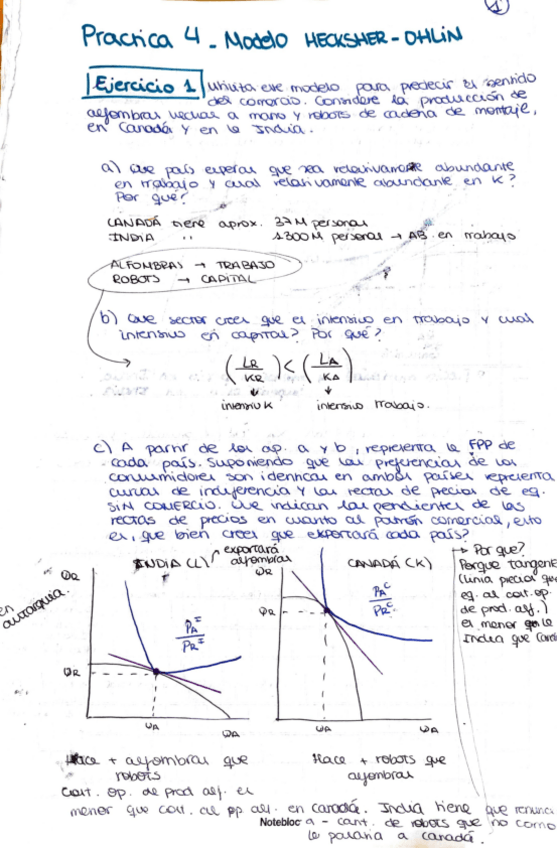 1
Practica 4 - Modelo HECKSHER-OHLIN
Ejercicio 1 Utiliza este modelo para predecir el sentido
del comercio. Considere la producción de
alfombras hechas a mano y robots de cadena de montaje,
en Canadá y en la India.
a) Que país esperas que sea relativamente abundante
en trabajo y cual relativamente abundante en K?
Por que?
CANADÁ tiene aprox. 37M personas
INDIA " 1300M personas → AB. en trabajo
ALFOMBRAS → TRABAJO
ROBOTS → CAPITAL
?
b) Que sector crees que es intensivo en trabajo y cual
intensivo en capital? Por qué?
(LR/KR) < (LA/KA)
intensivo K intensivo trabajo.
c) A partir de los ap. a y b, representa la FPP de
cada país. Suponiendo que las preferencias de los
consumidores son identicas en ambos países representa
curvas de indiferencia y las rectas de precios de eq.
SIN COMERCIO. Que indican las pendientes de las
rectas de precios en cuanto al patrón comercial, esto
es, que bien crees que exportará cada país?
en autarquía.
QR INDIA (L) exportará alfombras
PA^I/PR^I
QR
QA QA
QR CANADÁ (K)
PA^C/PR^C
QR
QA QA
→ Por que?
Porque tangente
(linia precios que
eq. al cost. op.
de prod. alf.)
es menor en la
India que
Hace + alfombras que
robots
Cost. op. de prod alf. es
Hace + robots que
alfombras
menor que cost. op alf. en canadá. India tiene que
Notebloc a - cant. de robots que no como
le pasaria a canadá.